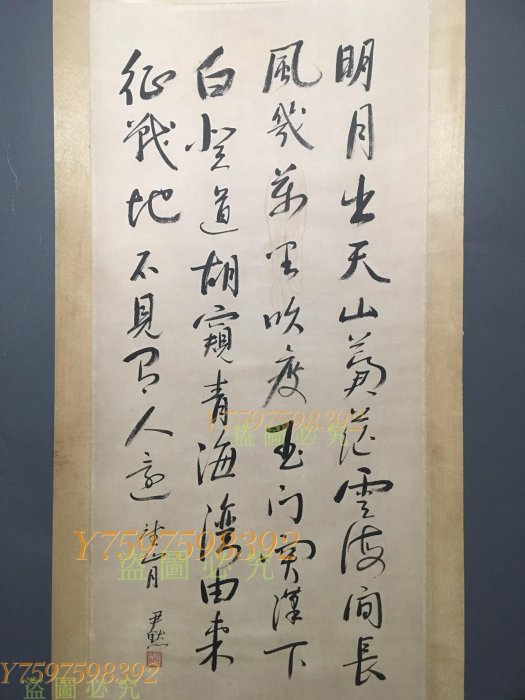 明月出天山蒼茫雲海間長
風幾萬里吹度玉門關漢下
白登道胡窺青海灣由來
征戰地不見有人還
尹默
Y7597598392
盜圖必究
Y7597598392
盜圖必究
Y7597598392
盜圖必究